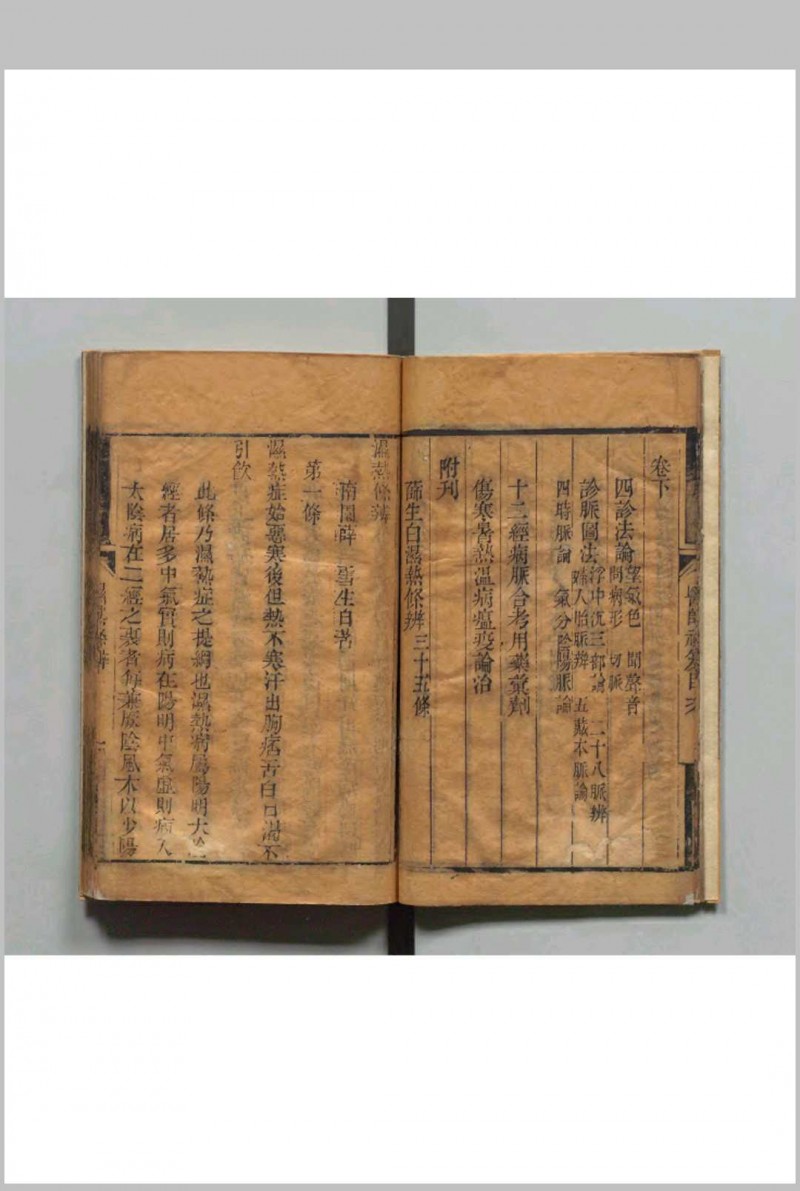 卷下
四診法論 望氣色 聞聲音
問病形 切脈
診脈圖法 浮中沉三部論 二十八脈辨
婦人胎脈辨 五臟本脈論
四時脈論 氣分陰陽脈論
十二經病脈合考用藥彙劑
傷寒暑熱溫病瘟疫論治
附刊
薛生白濕熱條辨 三十五條
濕熱條辨
南園薛 雪生白著
第一條
濕熱症始惡寒後但熱不寒汗出胸痞舌白口渴不
引飲
此條乃濕熱症之提綱也濕熱病屬陽明太陰
經者居多中氣實則病在陽明中氣虛則病入
太陰病在二經之表者每兼厥陰風木以少陽
濕熱條辨